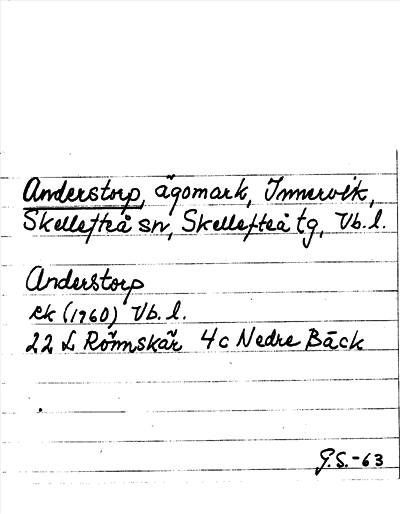 Anderstorp, ägomark, Innervik,
Skellefteå sn, Skellefteå tg, Vb. l.
Anderstorp
ek (1960) Vb. l.
22 L Rönnskär 4c Nedre Bäck
G.S.-63